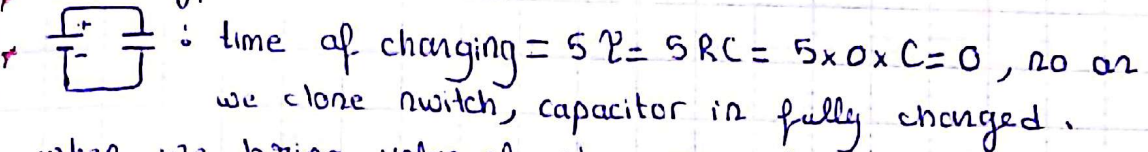 +
-
: time of charging = 5 τ = 5 RC = 5 x 0 x C = 0 , so as
we close switch, capacitor is fully charged .